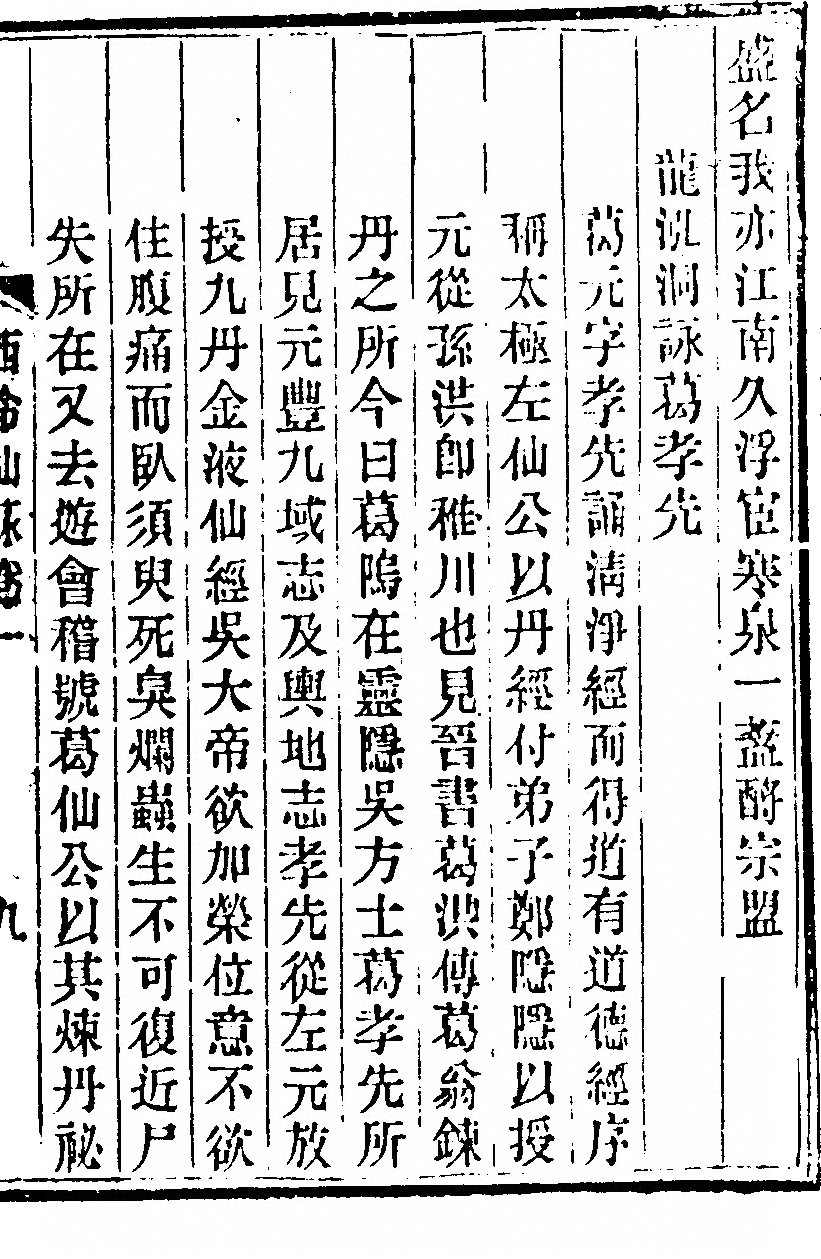 盛名我亦江南久浮宦寒泉一盞酹宗盟
龍泓洞詠葛孝先
葛元字孝先誦淸淨經而得道有道德經序
稱太極左仙公以丹經付弟子鄭隱隱以授
元從孫洪卽稚川也見晉書葛洪傳葛翁鍊
丹之所今曰葛塢在靈隱吳方士葛孝先所
居見元豐九域志及輿地志孝先從左元放
授九丹金液仙經吳大帝欲加榮位意不欲
住腹痛而臥須臾死臭爛蟲生不可復近尸
失所在又去遊會稽號葛仙公以其煉丹祕
西泠仙詠卷一
九